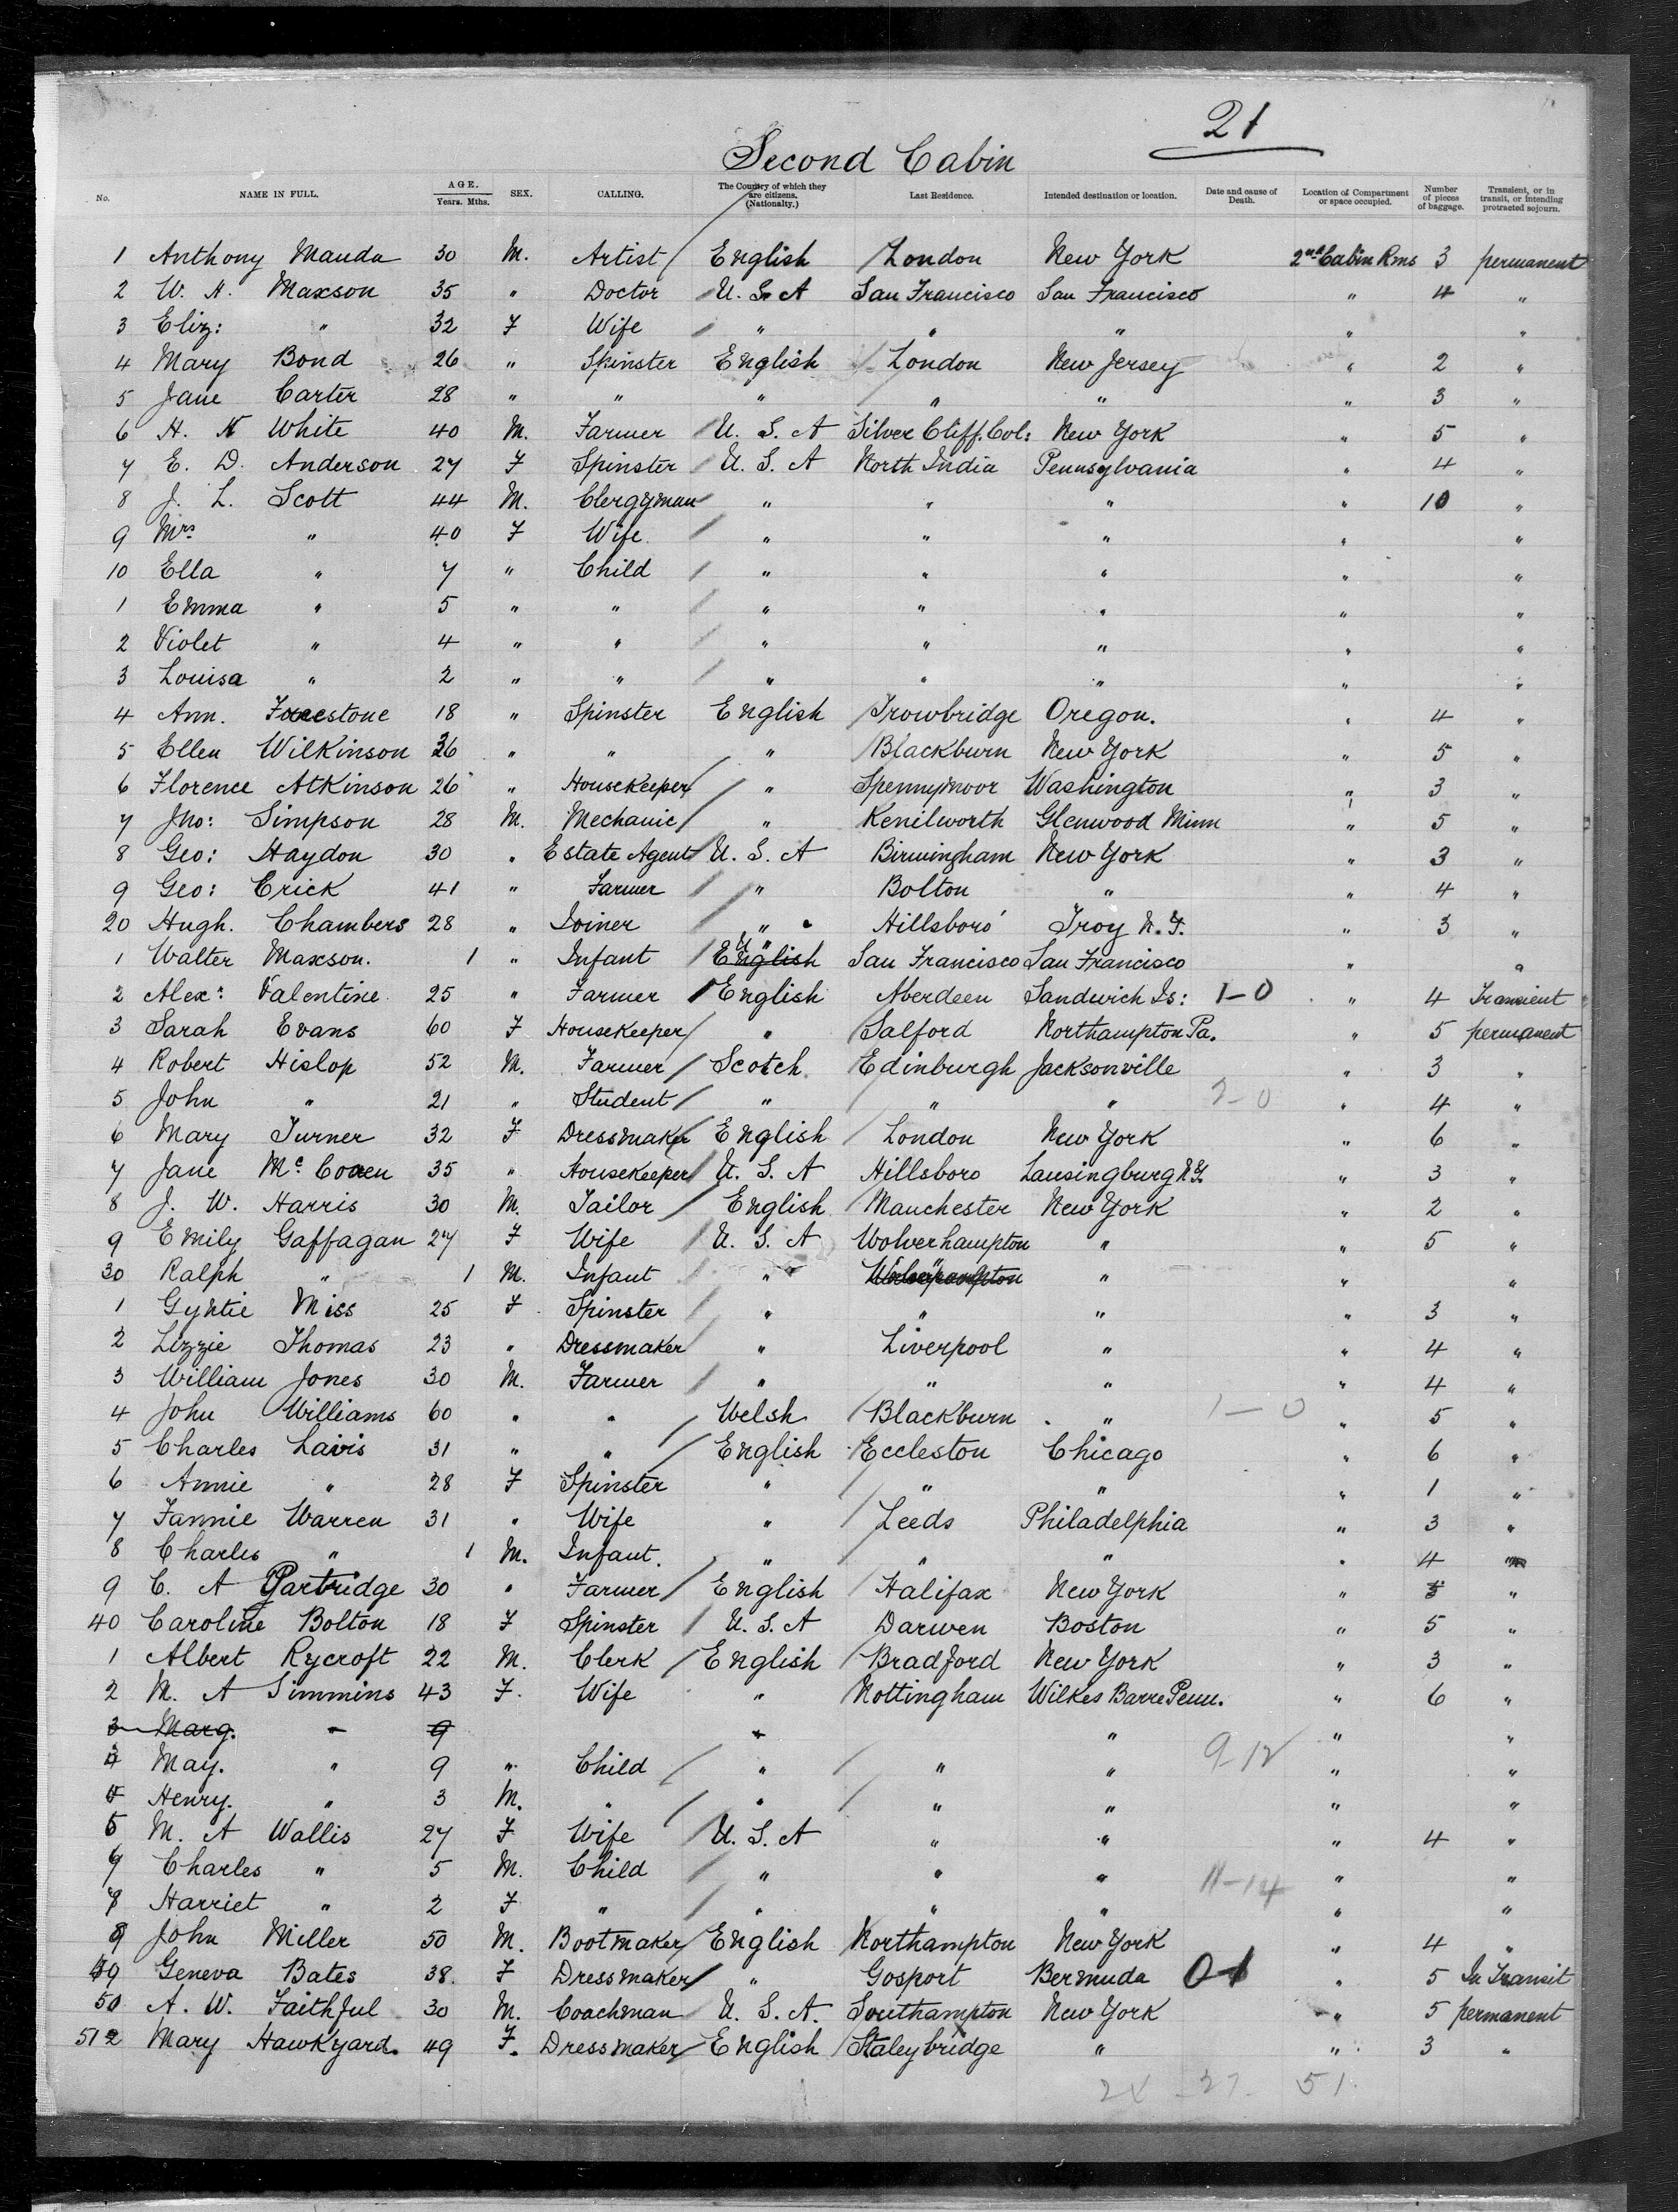 21
Second Cabin
No. NAME IN FULL. AGE. Years. Mths. SEX. CALLING. The Country of which they are citizens. (Nationalty.) Last Residence. Intended destination or location. Date and cause of Death. Location of Compartment or space occupied. Number of pieces of baggage. Transient, or in transit, or intending protracted sojourn.
1 Anthony Manda 30 M. Artist English London New York 2nd Cabin Rms 3 permanent
2 W. A. Maxson 35 " Doctor U. S. A San Francisco San Francisco " 4 "
3 Eliz: " 32 F Wife " " " " "
4 Mary Bond 26 " Spinster English London New Jersey " 2 "
5 Jane Carter 28 " " " " " " 3 "
6 H. White 40 M. Farmer U. S. A Silver Cliff. Col: New York " 5 "
7 E. D. Anderson 27 F Spinster U. S. A North India Pennsylvania " 4 "
8 J. L. Scott 44 M. Clergyman " " " " 10 "
9 Mrs " 40 F Wife " " " " "
10 Ella " 7 " Child " " " " "
1 Emma " 5 " " " " " " "
2 Violet " 4 " " " " " " "
3 Louisa " 2 " " " " " " "
4 Ann. 18 " Spinster English Trowbridge Oregon. " 4 "
5 Ellen Wilkinson 36 " " " Blackburn New York " 5 "
6 Florence Atkinson 26 " Housekeeper " Spennymoor Washington " 3 "
7 Jno: Simpson 28 M. Mechanic " Kenilworth Glenwood Minn " 5 "
8 Geo: Haydon 30 " Estate Agent U. S. A Birmingham New York " 3 "
9 Geo: Crick 41 " Farmer " Bolton " " 4 "
20 Hugh. Chambers 28 " Joiner " Hillsboro' Troy N. Y. " 3 "
1 Walter Maxson. 1 " Infant English San Francisco San Francisco " "
2 Alexr: Valentine 25 " Farmer English Aberdeen Sandwich Is: 1-0 " 4 Transient
3 Sarah Evans 60 F Housekeeper " Salford Northampton Pa. " 5 permanent
4 Robert Hislop 52 M. Farmer Scotch Edinburgh Jacksonville " 3 "
5 John " 21 " Student " " " 2-0 " 4 "
6 Mary Turner 32 F Dressmaker English London New York " 6 "
7 Jane 35 " Housekeeper U. S. A Hillsboro Lansingburg N.Y. " 3 "
8 J. W. Harris 30 M. Tailor English Manchester New York " 2 "
9 Emily Gaffagan 27 F Wife U. S. A Wolverhampton " " 5 "
30 Ralph " 1 M. Infant " Wolverhampton " " "
1 Gyntie Miss 25 F Spinster " " " " 3 "
2 Lizzie Thomas 23 " Dressmaker " Liverpool " " 4 "
3 William Jones 30 M. Farmer " " " " 4 "
4 John Williams 60 " " Welsh Blackburn " 1-0 " 5 "
5 Charles Lavis 31 " " English Eccleston Chicago " 6 "
6 Annie " 28 F Spinster " " " " 1 "
7 Fannie Warren 31 " Wife " Leeds Philadelphia " 3 "
8 Charles " 1 M. Infant. " " " " 4
9 C. A Partridge 30 " Farmer English Halifax New York " "
40 Caroline Bolton 18 F Spinster U. S. A Darwen Boston " 5 "
1 Albert Rycroft 22 M. Clerk English Bradford New York " 3 "
2 M. A Simmins 43 F. Wife " Nottingham Wilkes Barre Penn. " 6 "
3 Marg. " 9 " " " "
May. " 9 " Child " " " 9-12 " "
Henry. " 3 M. " " " " " "
M. A Wallis 27 F Wife U. S. A " " " 4 "
Charles " 5 M. Child " " " 11-14 " "
Harriet " 2 F " " " " " "
John Miller 50 M. Bootmaker English Northampton New York " 4 "
Geneva Bates 38. F Dressmaker " Gosport Bermuda 0-1 " 5 In Transit
50 A. W. Faithful 30 M. Coachman U. S. A. Southampton New York " 5 permanent
51 Mary Hawkyard. 49 F. Dressmaker English Staleybridge " " 3 "
27 51